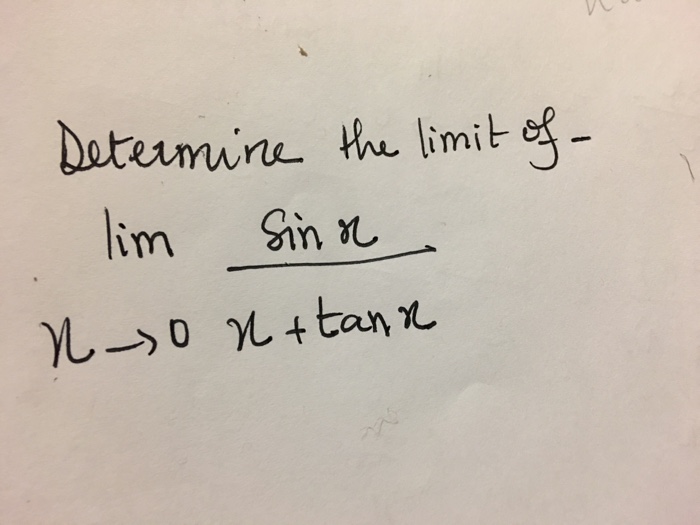 Determine the limit of -
lim sin x
x → 0 x + tan x